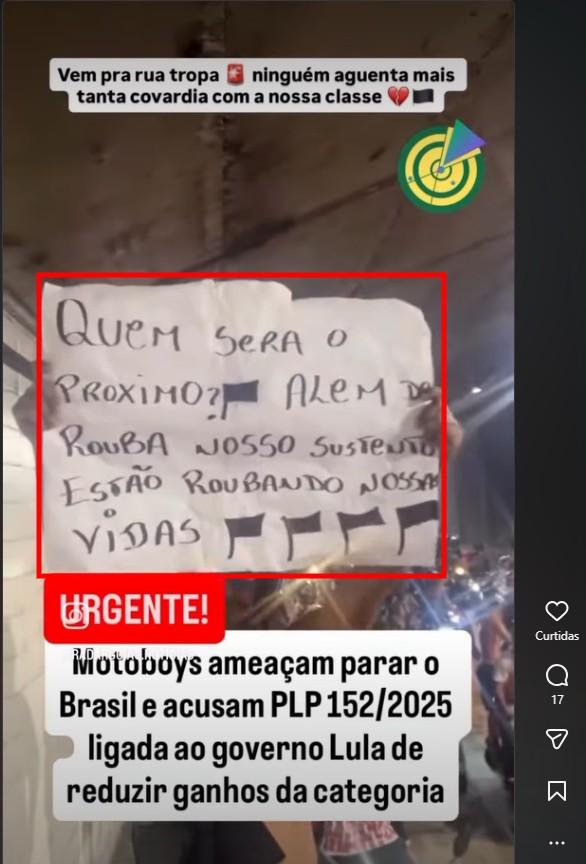 Vem pra rua tropa 🚨 ninguém aguenta mais
tanta covardia com a nossa classe 💔🏴
QUEM SERA O
PROXIMO?🏴 ALEM DE
ROUBA NOSSO SUSTENTO
ESTÃO ROUBANDO NOSSAS
VIDAS 🏴🏴🏴🏴
URGENTE!
Motoboys ameaçam parar o
Brasil e acusam PLP 152/2025
ligada ao governo Lula de
reduzir ganhos da categoria
Curtidas
17